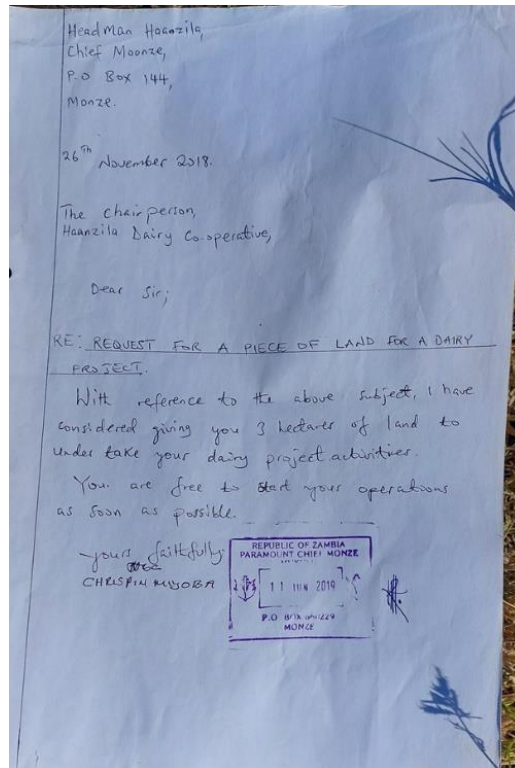 HeadMan Haanzila,
Chief Moonze,
P.O Box 144,
Monze.
26Th November 2018.
The Chairperson,
Haanzila Dairy Co-operative,
Dear Sir;
RE: REQUEST FOR A PIECE OF LAND FOR A DAIRY
PROJECT.
With reference to the above subject, I have
considered giving you 3 hectares of land to
under take your dairy project activities.
You are free to start your operations
as soon as possible.
Yours faithfully
CHRISPIN MIYOBA
REPUBLIC OF ZAMBIA
PARAMOUNT CHIEF MONZE
11 JUN 2019
P.O BOX
MONZE